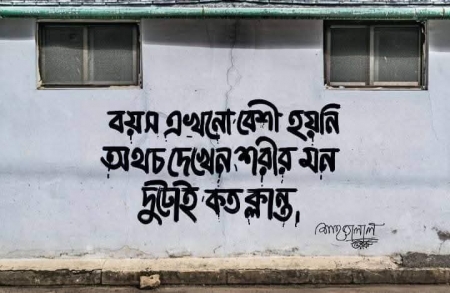 বয়স এখনো বেশী হয়নি
অথচ দেখেন শরীর মন
দুটোই কত ক্লান্ত,